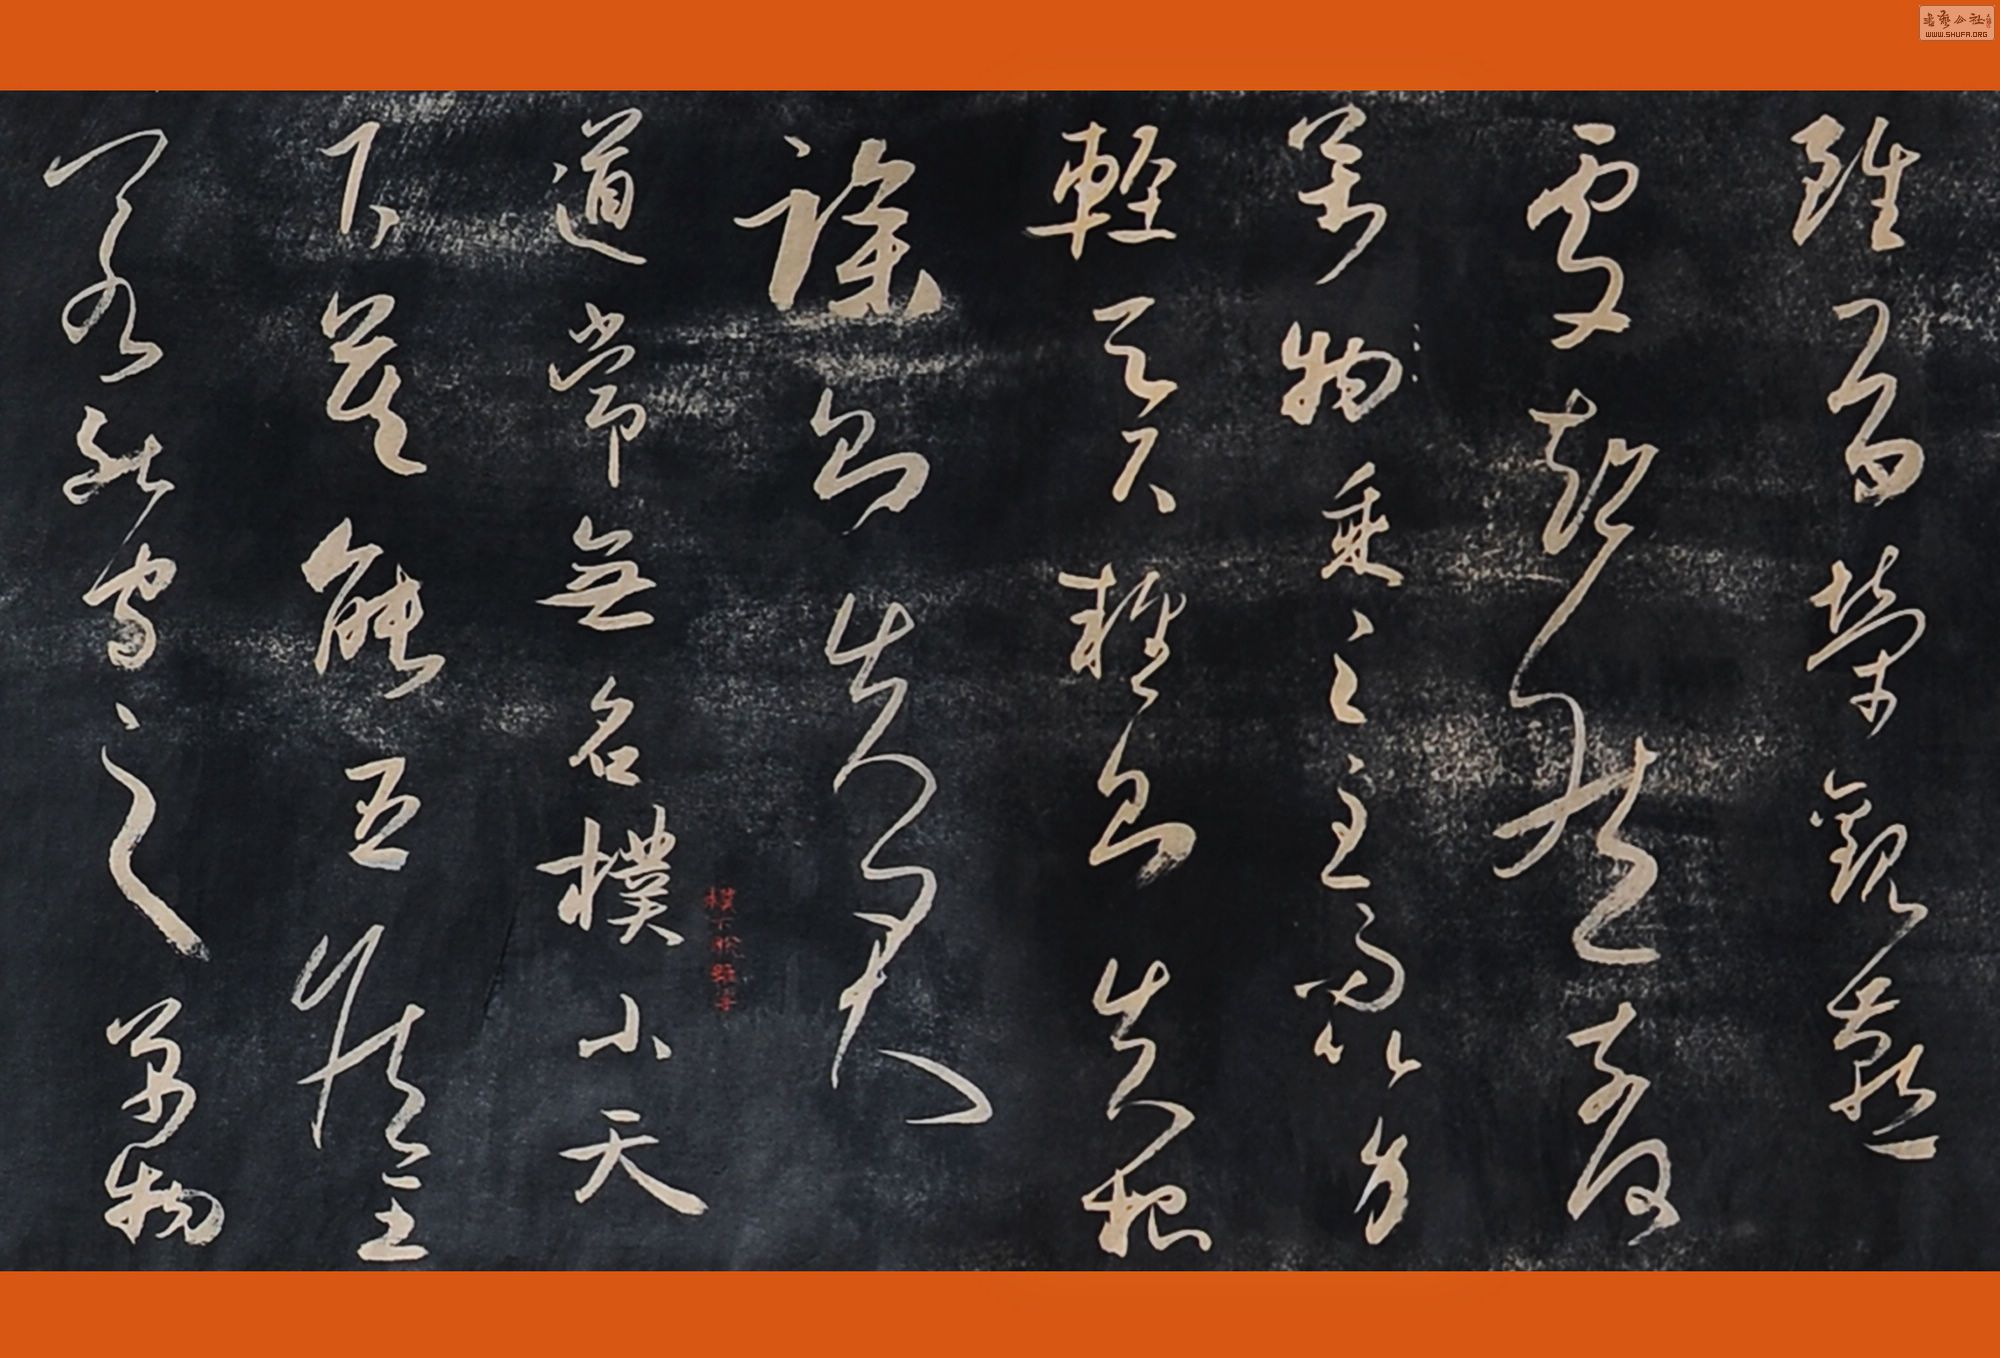 書藝公社
WWW.SHUFA.ORG
雖有榮觀燕
處超然奈何
萬物乘之主而以身
輕天下輕則失根
躁則失君
樸下脫雖字
道常無名樸小天
下莫能臣侯王
若能守之萬物